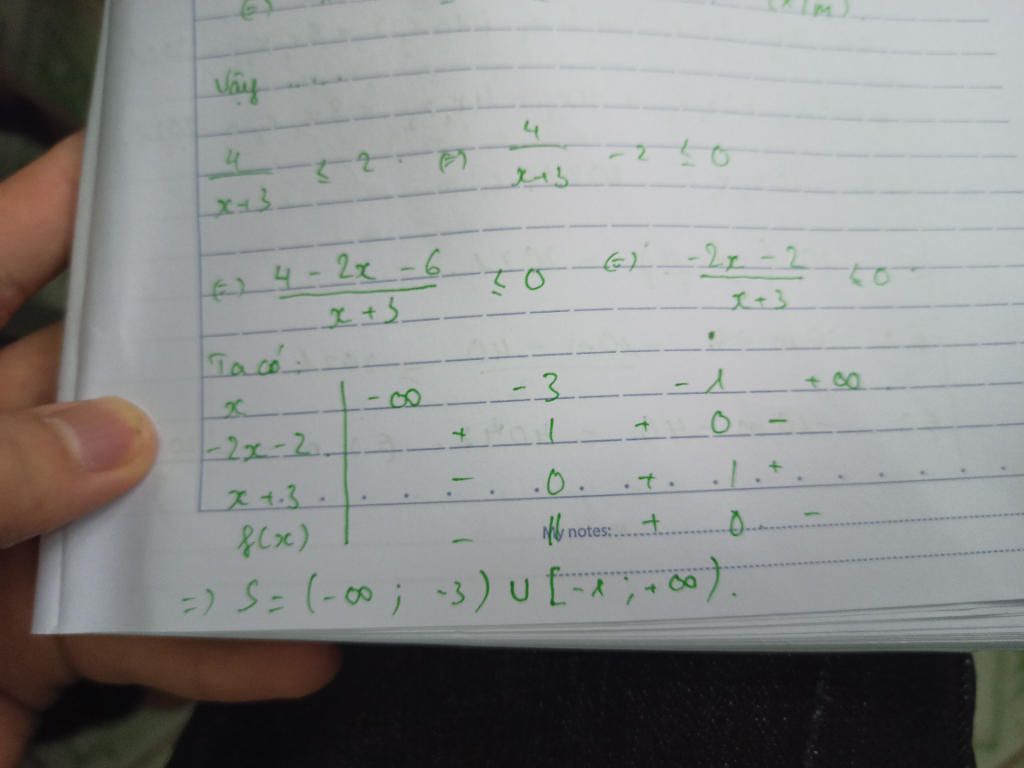 (=)
Vậy .....
4/(x+3) ≤ 2. (=) 4/(x+3) - 2 ≤ 0
(=) (4 - 2x - 6)/(x + 3) ≤ 0 (=) (-2x - 2)/(x+3) ≤ 0
Ta có:
x | -∞ -3 -1 +∞
-2x-2 | + | + 0 -
x+3 | - 0 + | +
f(x) | - || + 0 -
My notes:
=) S = (-∞; -3) ∪ [-1; +∞).